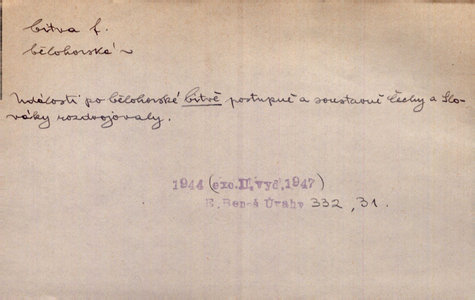 bitva f.
bělohorská ~
Události po bělohorské bitvě postupně a soustavně Čechy a Slo-
váky rozdvojovaly.
1944 (exc. II. vyd. 1947)
E. Ben-á Úvahy 332, 31.